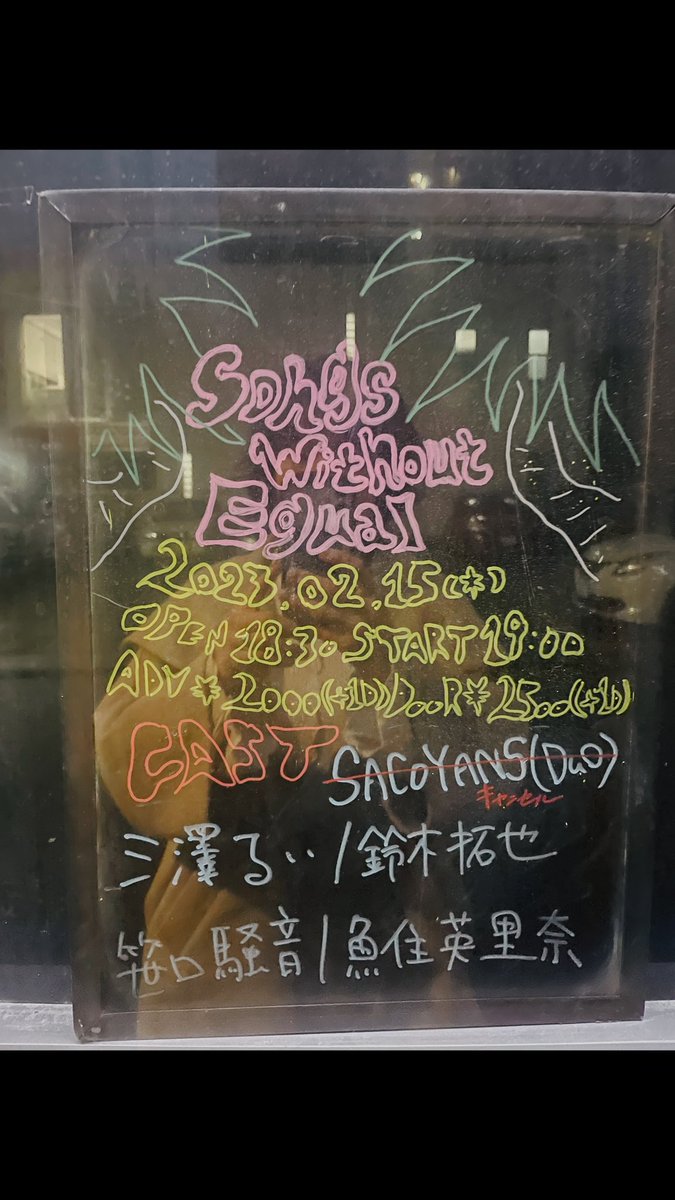 Songs
Without
Equal
2023.02.15(水)
OPEN 18:30 START 19:00
ADV*2000(+1D)/DOOR*2500(+1D)
CAST SACOYANS(Duo)
キャンセル
三澤るい/鈴木拓也
笹口騒音/魚住英里奈